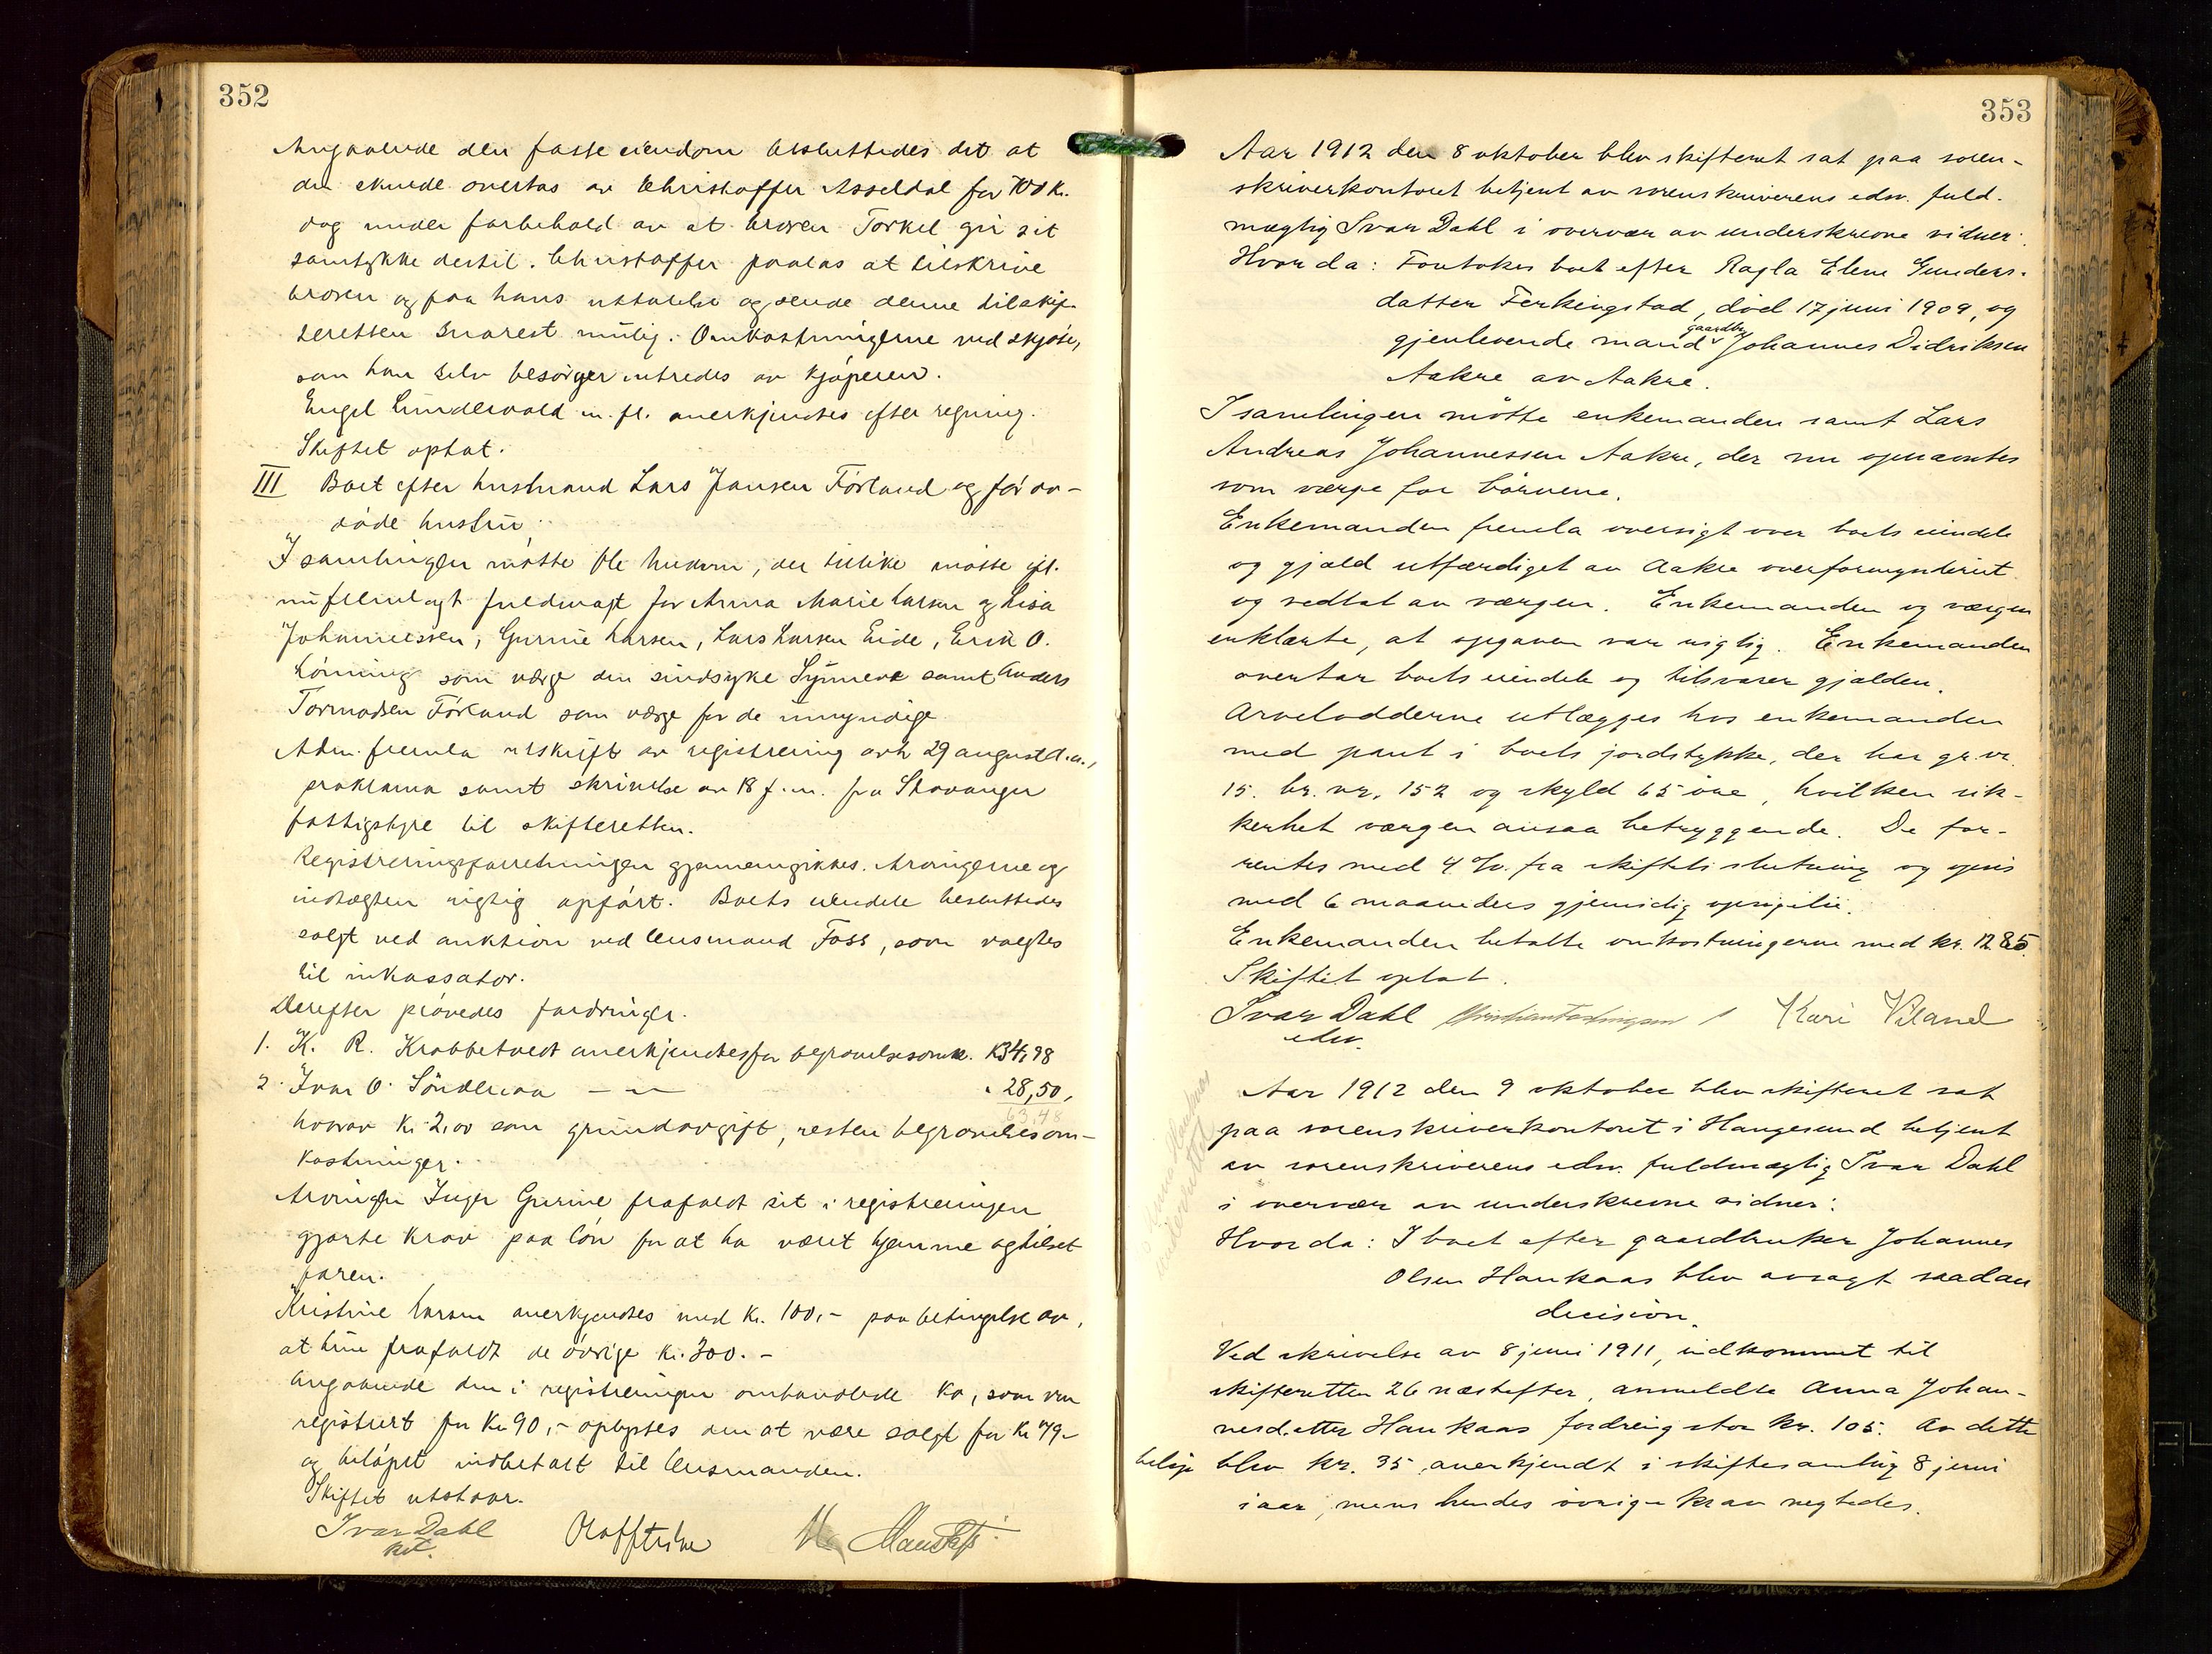 352
Angaaende den faste eiendom besluttedes det at
den skulde overtas av Christoffer Asseldal for 700 K.
dog under forbehold av at broren Torkel gir sit
samtykke dertil. Christoffer paalas at tilskrive
broren og faa hans uttalelse og sende denne til skif-
teretten snarest mulig. Omkostningerne ved skjøte,
som han selv besørger utredes av kjøperen.
Engel m. fl. anerkjendtes efter regning.
Skiftet optat.
III Boet efter husmand Lars Jansen Førland og før av-
døde hustru:
I samlingen møtte Ole, der tillike møtte ifl.
nu fremlagt fuldmagt for Anna Marie Larsen og Lisa
Johannessen, Gurine Larsen, Lars Larsen Eide, Erik O.
Lønning som værge den sindsyke Synneve samt Anders
Tormodsen Førland som værge for de umyndige.
Adm. fremla utskrift av registrering avh. 29 august d.a.,
proklama samt skrivelse av 18 f.m. fra Stavanger
fattigstyre til skifteretten.
Registreringsforretningen gjennemgikkes. Arvingerne og
indtægten rigtig opført. Boets eiendele besluttedes
solgt ved auktion ved lensmand Foss, som valgtes
til inkassator.
Derefter prøvedes fordringer.
1. K. R. Krabbetvedt anerkjendtes for begravelsesomk. K 34,98
2. Ivar O. Søndenaa — — " 28,50,
63,48
hvorav Kr. 2,00 som grundavgift, resten begravelsesom-
kostninger.
Arvingen Inger Gurine frafaldt sit i registreringen
gjorte krav paa løn for at ha været hjemme og stelset
faren.
Kristine Larsen anerkjendtes med Kr. 100,- paa betingelse av,
at hun frafaldt de øvrige Kr. 300.-
Angaaende den i registreringen omhandlede ko, som var
registrert for Kr 90,- oplystes den at være solgt for Kr 79-
og beløpet indbetalt til lensmanden.
Skiftet utstaar.
Ivar Dahl
kst.
353
Aar 1912 den 8 oktober blev skifteret sat paa soren-
skriverkontoret betjent av sorenskriverens edsv. fuld-
mægtig Ivar Dahl i overvær av underskrevne vidner.
Hvorda: Foretokes boet efter Ragla Elene Gunders-
datter Ferkingstad, død 17 juni 1909, og
gjenlevende mand gaardbr. Johannes Didriksen
Aakre av Aakre.
I samlingen møtte enkemanden samt Lars
Andreas Johannessen Aakre, der nu opnævntes
som værge for børnene.
Enkemanden fremla oversigt over boets eiendele
og gjæld utfærdiget av Aakre overformynderiet
og vedtat av værgen. Enkemanden og værgen
erklærte, at opgaven var rigtig. Enkemanden
overtar boets eiendele og tilsvarer gjælden.
Arvelodderne utlægges hos enkemanden
med pant i boets jordstykke, der har gr. nr.
15. br. nr. 152 og skyld 65 øre, hvilken sik-
kerhet værgen ansaa betryggende. De for-
rentes med 4 %. fra skiftets slutning og opsies
med 6 maaneders gjensidig opsigelse.
Enkemanden betalte omkostningerne med kr. 12.85.
Skiftet optat.
Ivar Dahl Kari Viland
edsv.
Aar 1912 den 9 oktober blev skifteret sat
paa sorenskriverkontoret i Haugesund betjent
av sorenskriverens edsv. fuldmægtig Ivar Dahl
i overvær av underskrevne vidner:
Hvorda: I boet efter gaardbruker Johannes
Olsen Haukaas blev avsagt saadan
decision.
Ved skrivelse av 8 juni 1911, indkommet til
skifteretten 26 næstefter, anmeldte Anna Johan-
nesdatter Haukaas fordring stor kr. 105. Av dette
beløp blev kr. 35 anerkjendt i skiftesamling 8 juni
iaar, mens hendes øvrige krav negtedes.